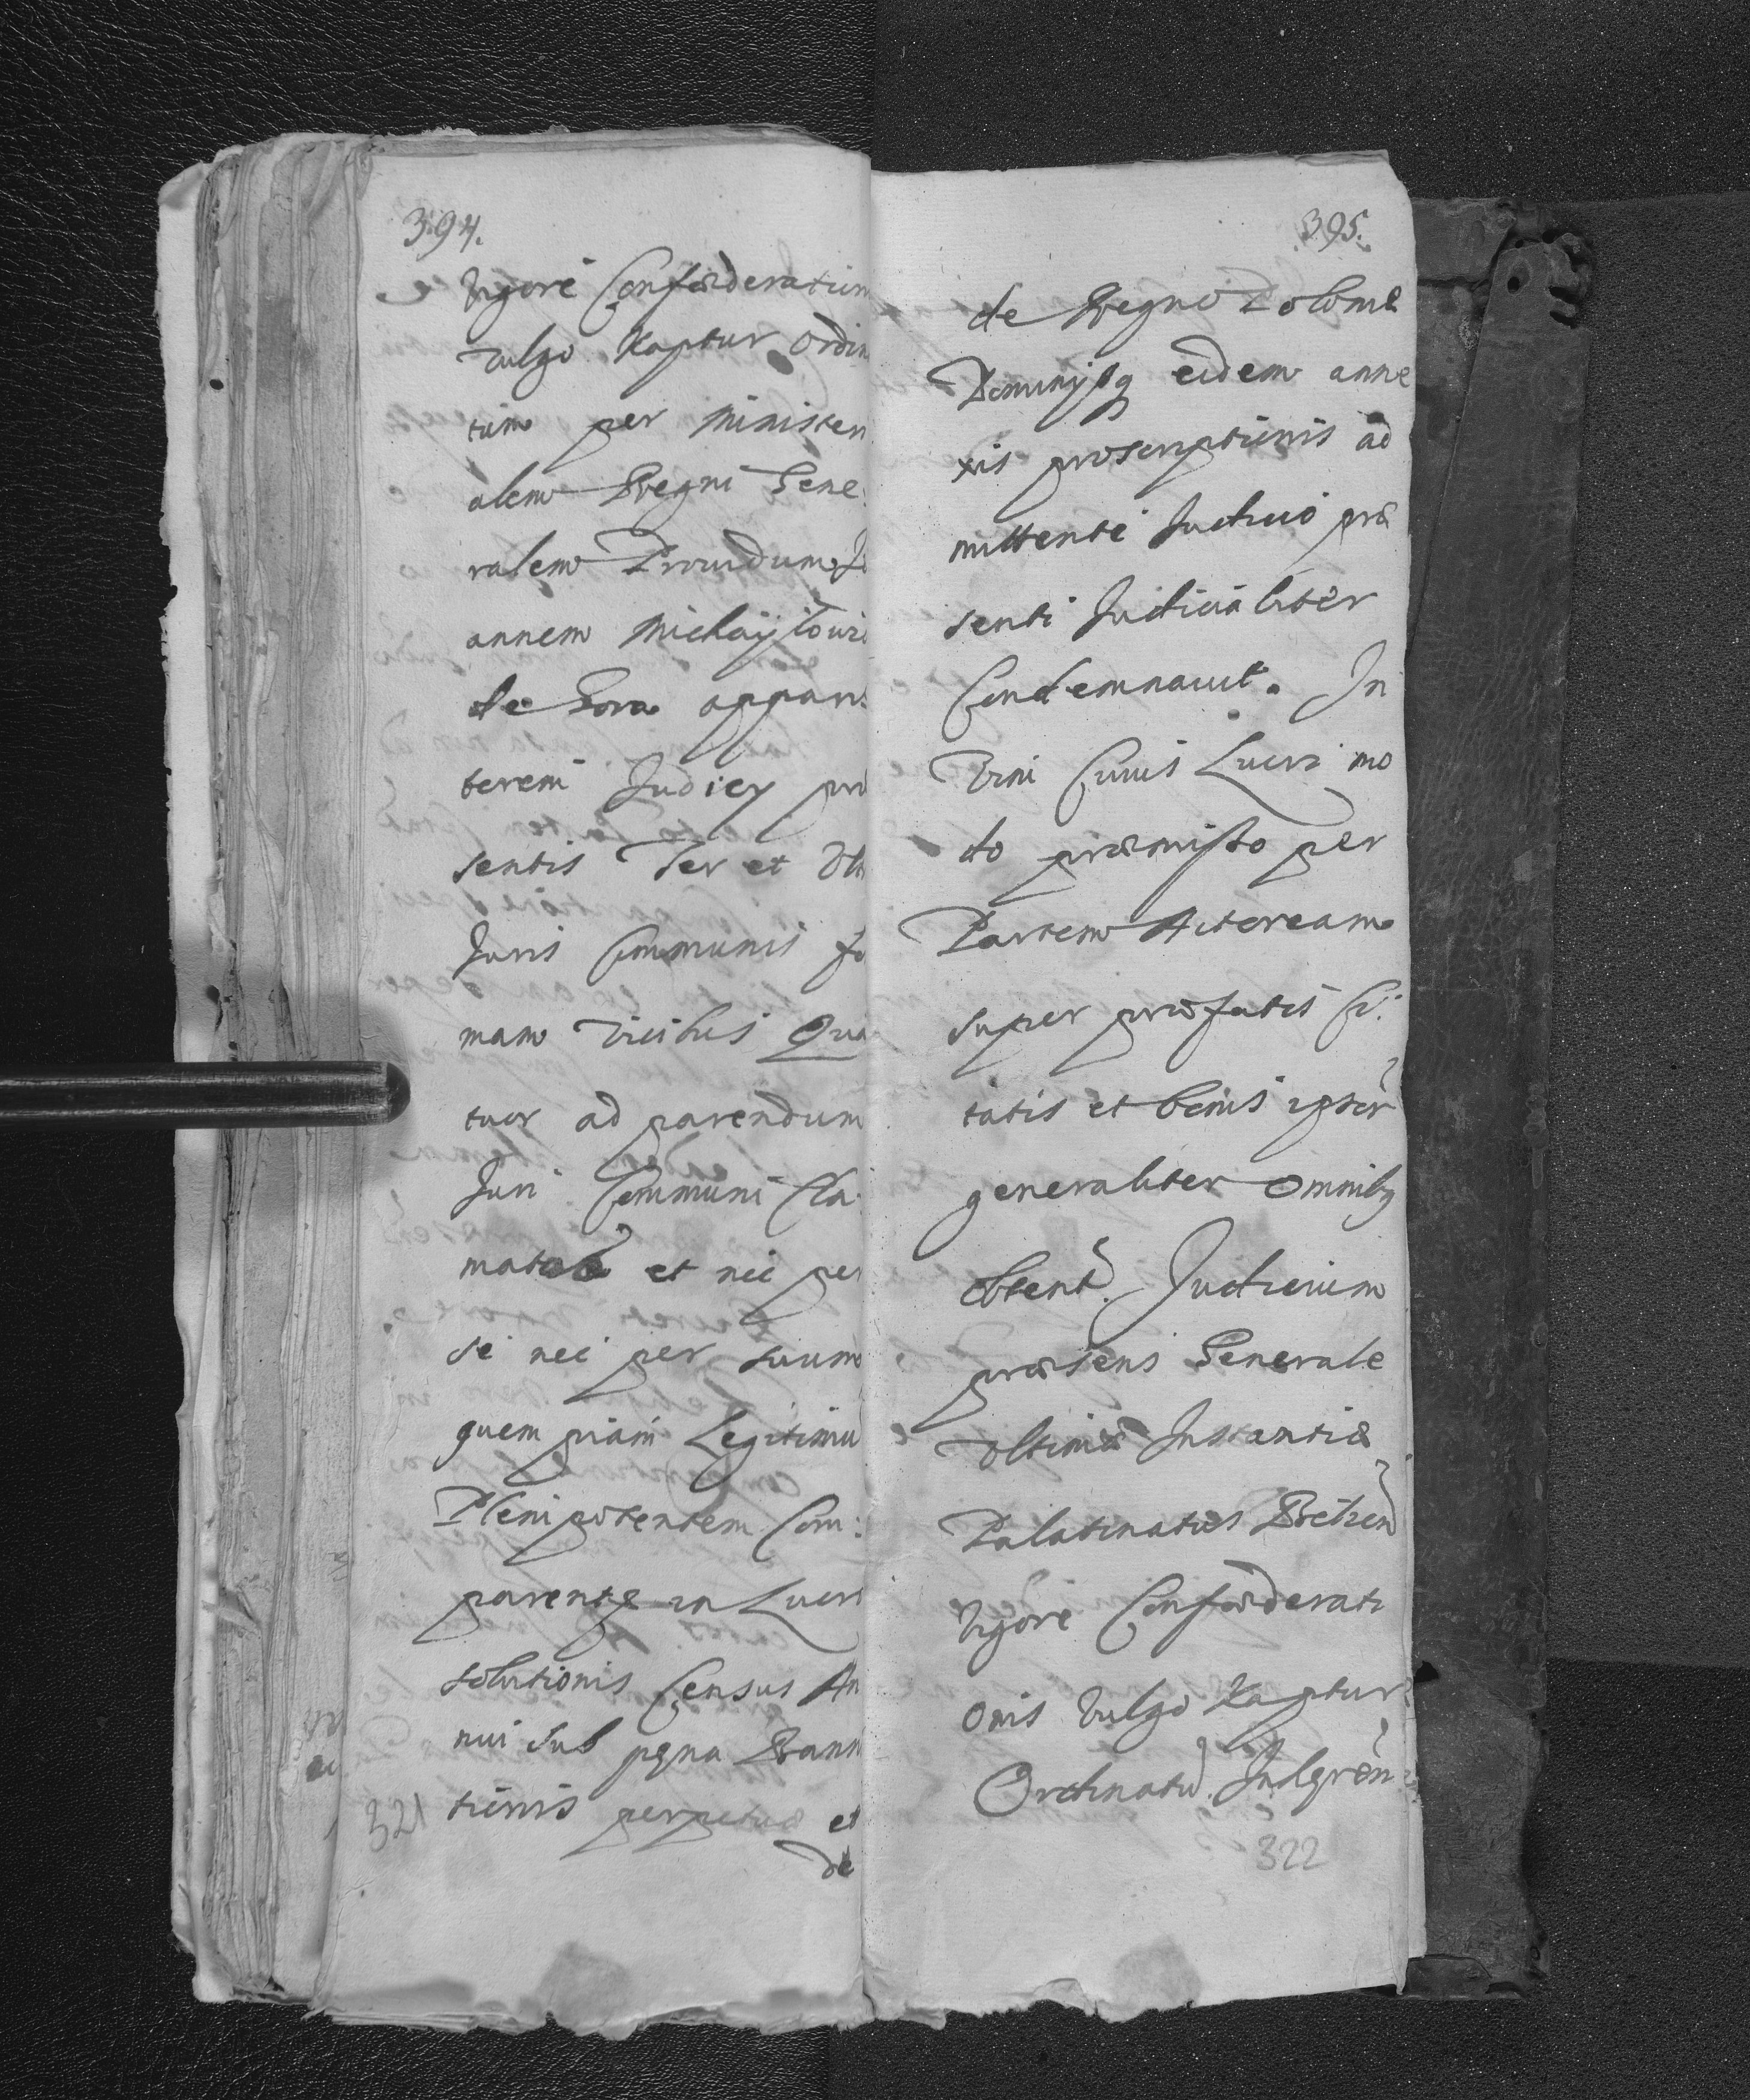 394.
Vigore Confæderation
vulgo Kaptur Ordin
tum per Ministeri
alem Regni Gene:
ralem Providum Jo
annem Michayłowi
de Gora appari
torem Judicy præ
sentis Ter et Ult
Juris Communis fo
mam vicibus Qua
tuor ad parendum
Juri Communi Cla:
matæ et nec per
se nec per suum
quem piam Legitimu
Plenipotentem Com:
parentis in Lucri
solutionis Census An
nui sub pœna Bann
tionis perpetuæ et
de
321
395.
de Regno Poloniæ
Dominijsq eidem anne
xis proscriptionis ad
mittente Judicio præ
senti Judicialiter
Condemnavit. In
Vim Cuius Lucri mo
do præmisso per
Partem Actoream
super præfatis Ci:
tatis et bonis ipsor
generaliter Omnibq
obtent. Judicium
præsens Generale
Ultimæ Instantiæ
Palatinatus Belzen
Vigore Confæderati
onis Vulgo Kaptur
Ordinatu. Inhæren
322